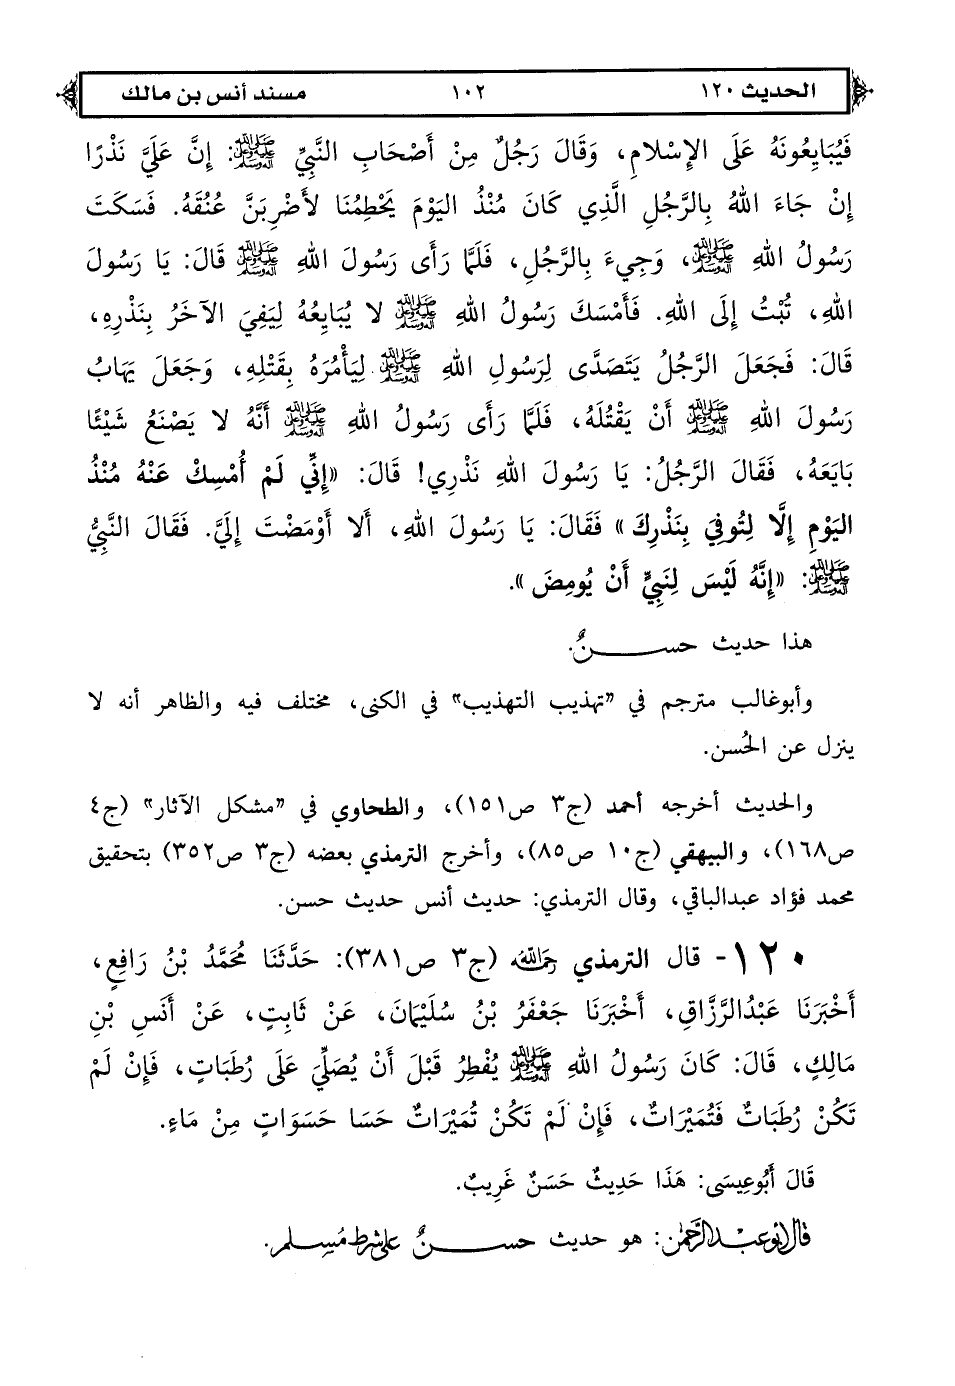 الحديث ١٢٠ ١٠٢ مسند أنس بن مالك
فَيُبَايِعُونَهُ عَلَى الإِسْلامِ، وَقَالَ رَجُلٌ مِنْ أَصْحَابِ النَّبِيِّ ﷺ: إِنَّ عَلَيَّ نَذْرًا
إِنْ جَاءَ اللهُ بِالرَّجُلِ الَّذِي كَانَ مُنْذُ اليَوْمَ يَحْطِمُنَا لأَضْرِبَنَّ عُنُقَهُ. فَسَكَتَ
رَسُولُ اللهِ ﷺ، وَجِيءَ بِالرَّجُلِ، فَلَمَّا رَأَى رَسُولَ اللهِ ﷺ قَالَ: يَا رَسُولَ
اللهِ، تُبْتُ إِلَى اللهِ. فَأَمْسَكَ رَسُولُ اللهِ ﷺ لا يُبَايِعُهُ لِيَفِيَ الآخَرُ بِنَذْرِهِ،
قَالَ: فَجَعَلَ الرَّجُلُ يَتَصَدَّى لِرَسُولِ اللهِ ﷺ لِيَأْمُرَهُ بِقَتْلِهِ، وَجَعَلَ يَهَابُ
رَسُولَ اللهِ ﷺ أَنْ يَقْتُلَهُ، فَلَمَّا رَأَى رَسُولُ اللهِ ﷺ أَنَّهُ لا يَصْنَعُ شَيْئًا
بَايَعَهُ، فَقَالَ الرَّجُلُ: يَا رَسُولَ اللهِ نَذْرِي! قَالَ: «إِنِّي لَمْ أُمْسِكْ عَنْهُ مُنْذُ
اليَوْمِ إِلَّا لِتُوفِيَ بِنَذْرِكَ» فَقَالَ: يَا رَسُولَ اللهِ، أَلا أَوْمَضْتَ إِلَيَّ. فَقَالَ النَّبِيُّ
ﷺ: «إِنَّهُ لَيْسَ لِنَبِيٍّ أَنْ يُومِضَ».
هذا حديث حســـــنٌ.
وأبوغالب مترجم في "تهذيب التهذيب" في الكنى، مختلف فيه والظاهر أنه لا
ينزل عن الحُسن.
والحديث أخرجه أحمد (ج٣ ص١٥١)، والطحاوي في "مشكل الآثار" (ج٤
ص١٦٨)، والبيهقي (ج١٠ ص٨٥)، وأخرج الترمذي بعضه (ج٣ ص٣٥٢) بتحقيق
محمد فؤاد عبدالباقي، وقال الترمذي: حديث أنس حديث حسن.
١٢٠- قال الترمذي رَحِمَهُ اللهُ (ج٣ ص٣٨١): حَدَّثَنَا مُحَمَّدُ بْنُ رَافِعٍ،
أَخْبَرَنَا عَبْدُالرَّزَّاقِ، أَخْبَرَنَا جَعْفَرُ بْنُ سُلَيْمَانَ، عَنْ ثَابِتٍ، عَنْ أَنَسِ بْنِ
مَالِكٍ، قَالَ: كَانَ رَسُولُ اللهِ ﷺ يُفْطِرُ قَبْلَ أَنْ يُصَلِّيَ عَلَى رُطَبَاتٍ، فَإِنْ لَمْ
تَكُنْ رُطَبَاتٌ فَتُمَيْرَاتٌ، فَإِنْ لَمْ تَكُنْ تُمَيْرَاتٌ حَسَا حَسَوَاتٍ مِنْ مَاءٍ.
قَالَ أَبُوعِيسَى: هَذَا حَدِيثٌ حَسَنٌ غَرِيبٌ.
قال أبو عبد الرحمٰن: هو حديث حســـــنٌ على شرط مُسلم.